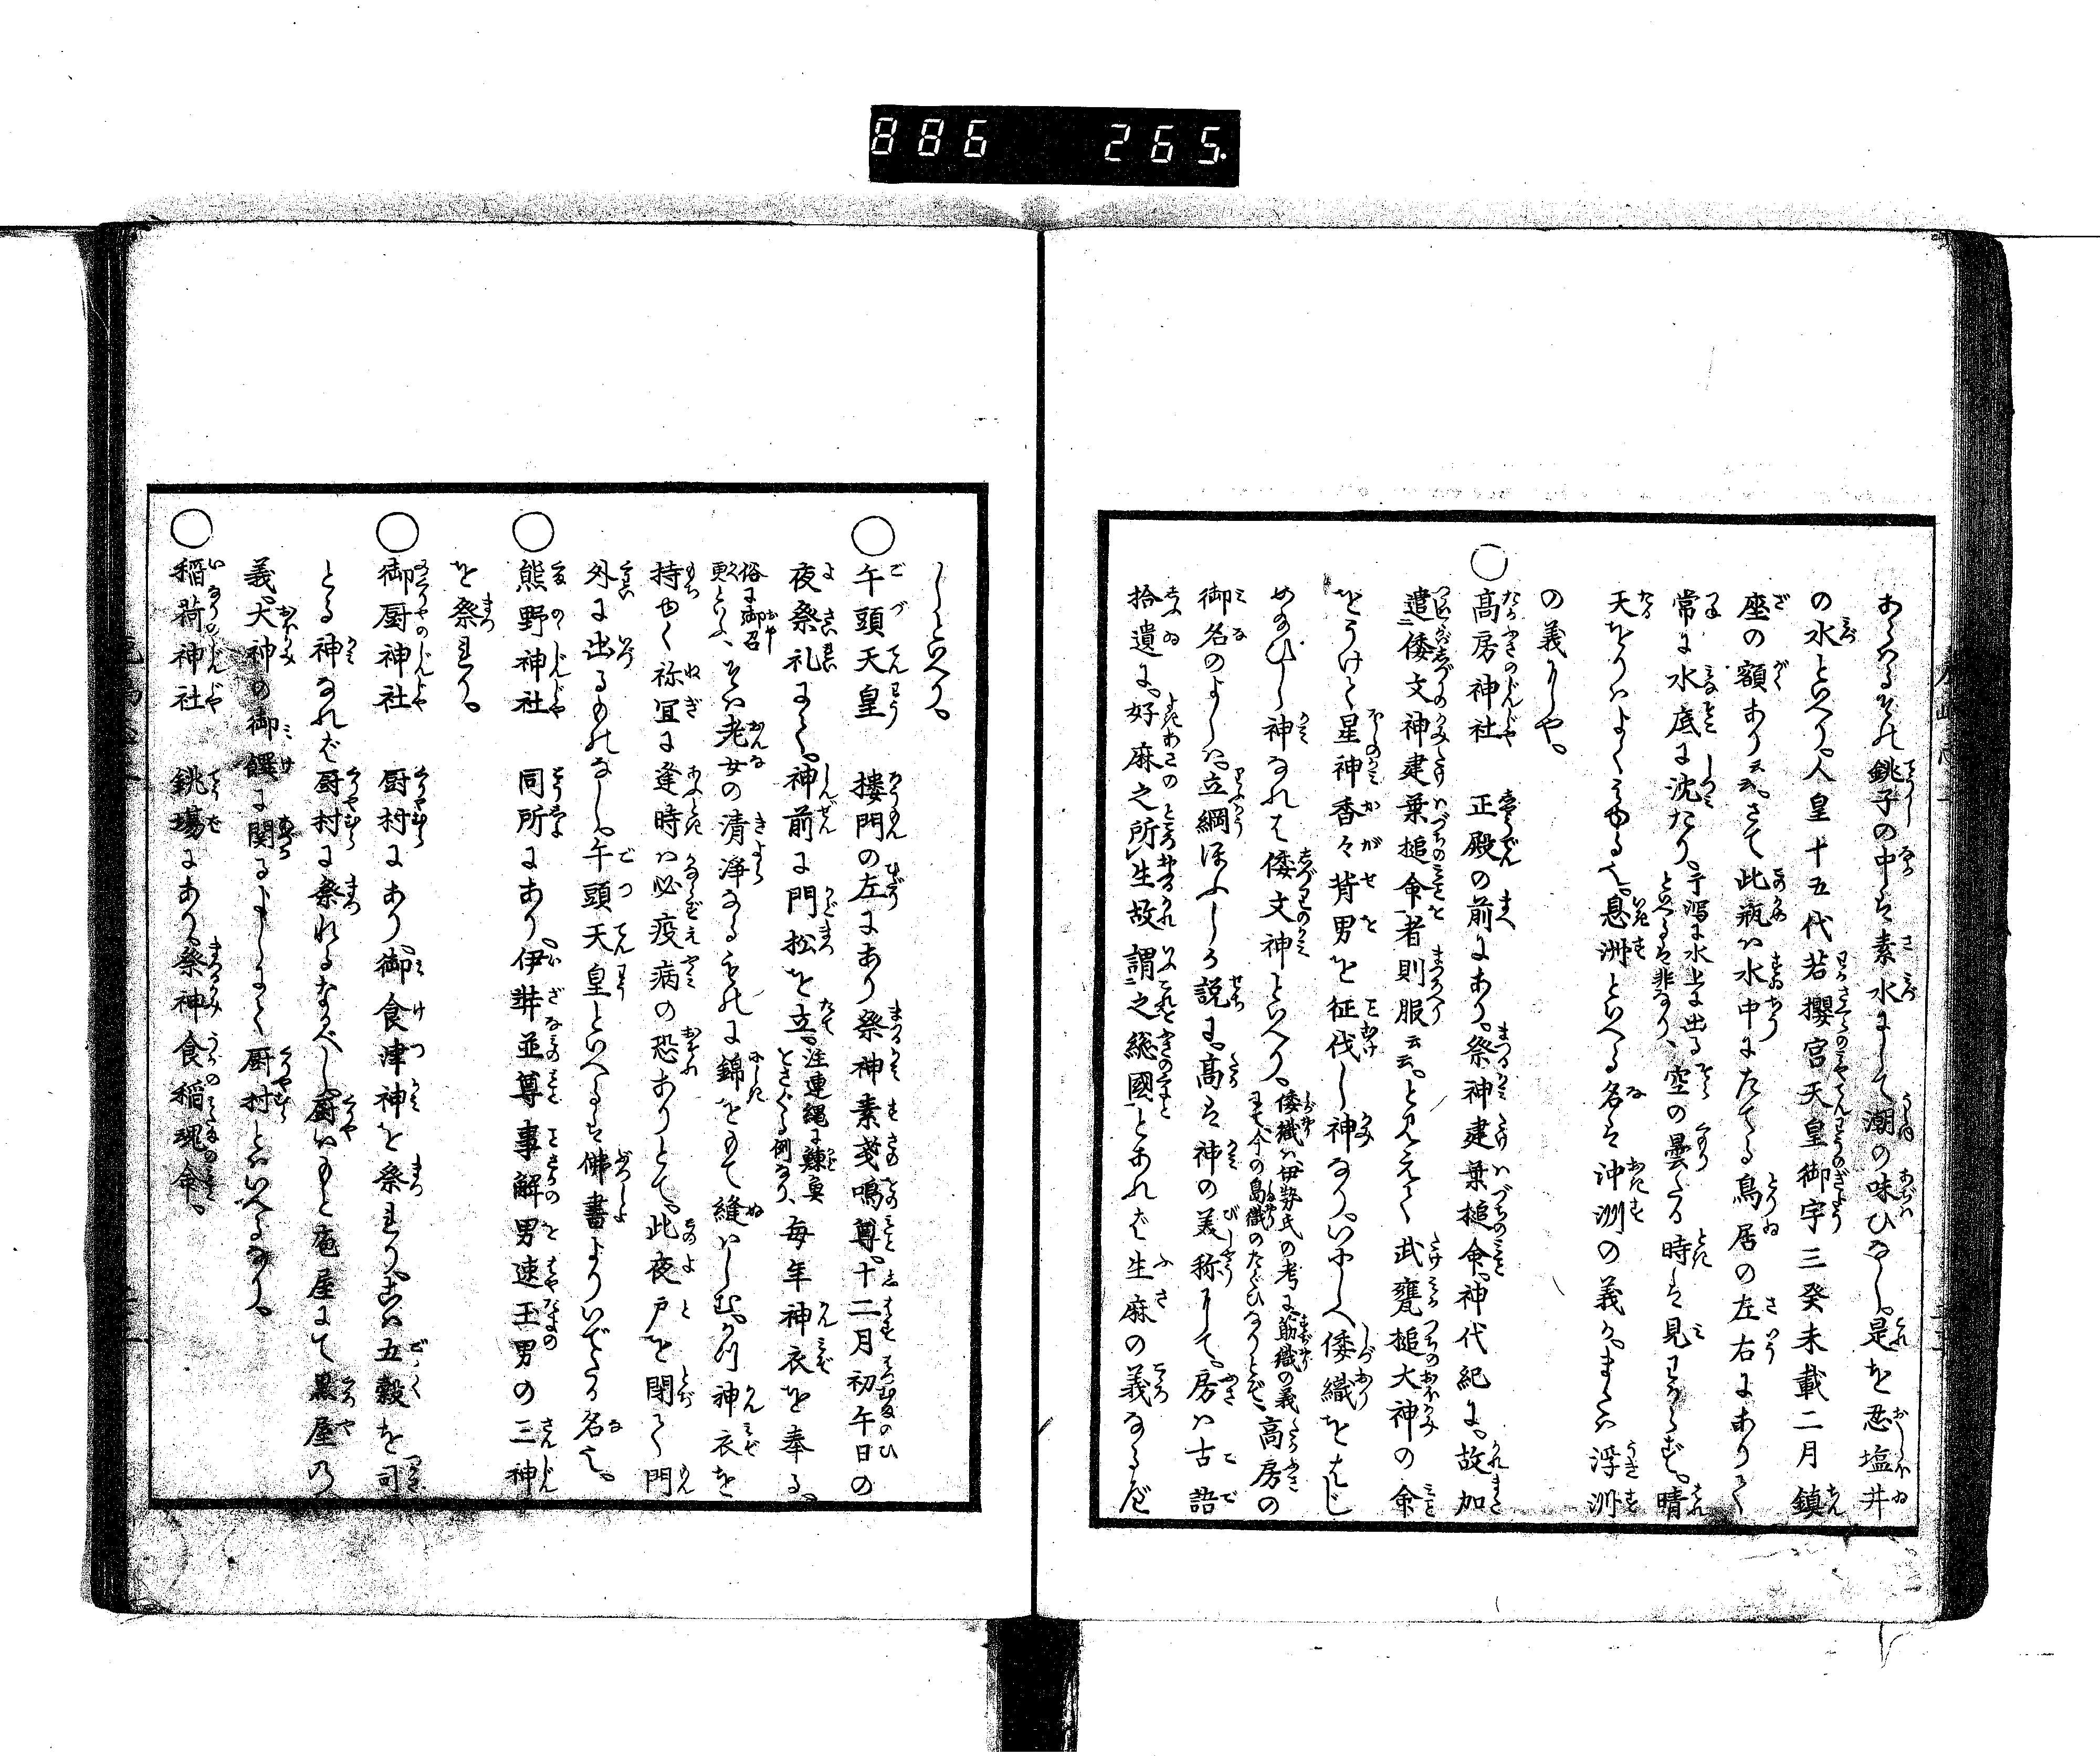 886 265.
あらはるそれ銚子の中は素水にして潮の味ひなし。是を忍塩井
の水といへり。人皇十五代若櫻宮天皇御宇三癸未載二月鎮
座の額あり云云。さて此瓶は水中にたてる鳥居の左右にありて
常に水底に沈たり。干潟に水上に出るといへるは非なり、空の曇たる時は見ワからず。晴
天をりはよくミゆる也。息洲といへる名は沖洲の義か。または浮洲
の義にや。
○高房神社 正殿の前にあり。祭神建葉槌命。神代紀に。故加
遣倭文神建葉槌命者則服云云。と見えて武甕槌大神の命
をうけて星神香々背男を征伐し神なり。いにしへ倭織をはじ
めまひし神なれは倭文神といへり。倭織は伊勢氏の考に筋織の義にて今の島織のたぐひなりとぞ、高房の
御名のよしは。立綱ほふしの説に。高は神の美称にて。房は古語
拾遺に。好麻之所生故謂之総國とあれば生麻の義なるべ
しといへり。
○午頭天皇 楼門の左にあり祭神素戔嗚尊。十二月初午日の
夜祭礼にて。神前に門松を立。注連縄に鰊魚とさぐる例なり、毎年神衣を奉る。
俗に御召更といふ、そは老女の清浄なるものに錦をもて縫はしむ。かの神衣を
持ゆく祢宜に逢時は必疫病の恐ありとて。此夜戸を閉て門
外に出るものなし。午頭天皇といへるは佛書よりいでたる名也。
○熊野神社 同所にあり。伊弉並尊事解男速玉男の三神
を祭れり。
○御厨神社 厨村にあり。御食津神を祭れり。こは五穀を司
とる神なれば厨村に祭れるなるべし。厨はもと庖屋にて黒屋の
義。大神の御饌に関るよしにて厨村とはいへるなり。
○稲荷神社 銚塲にあり。祭神食稲魂命。